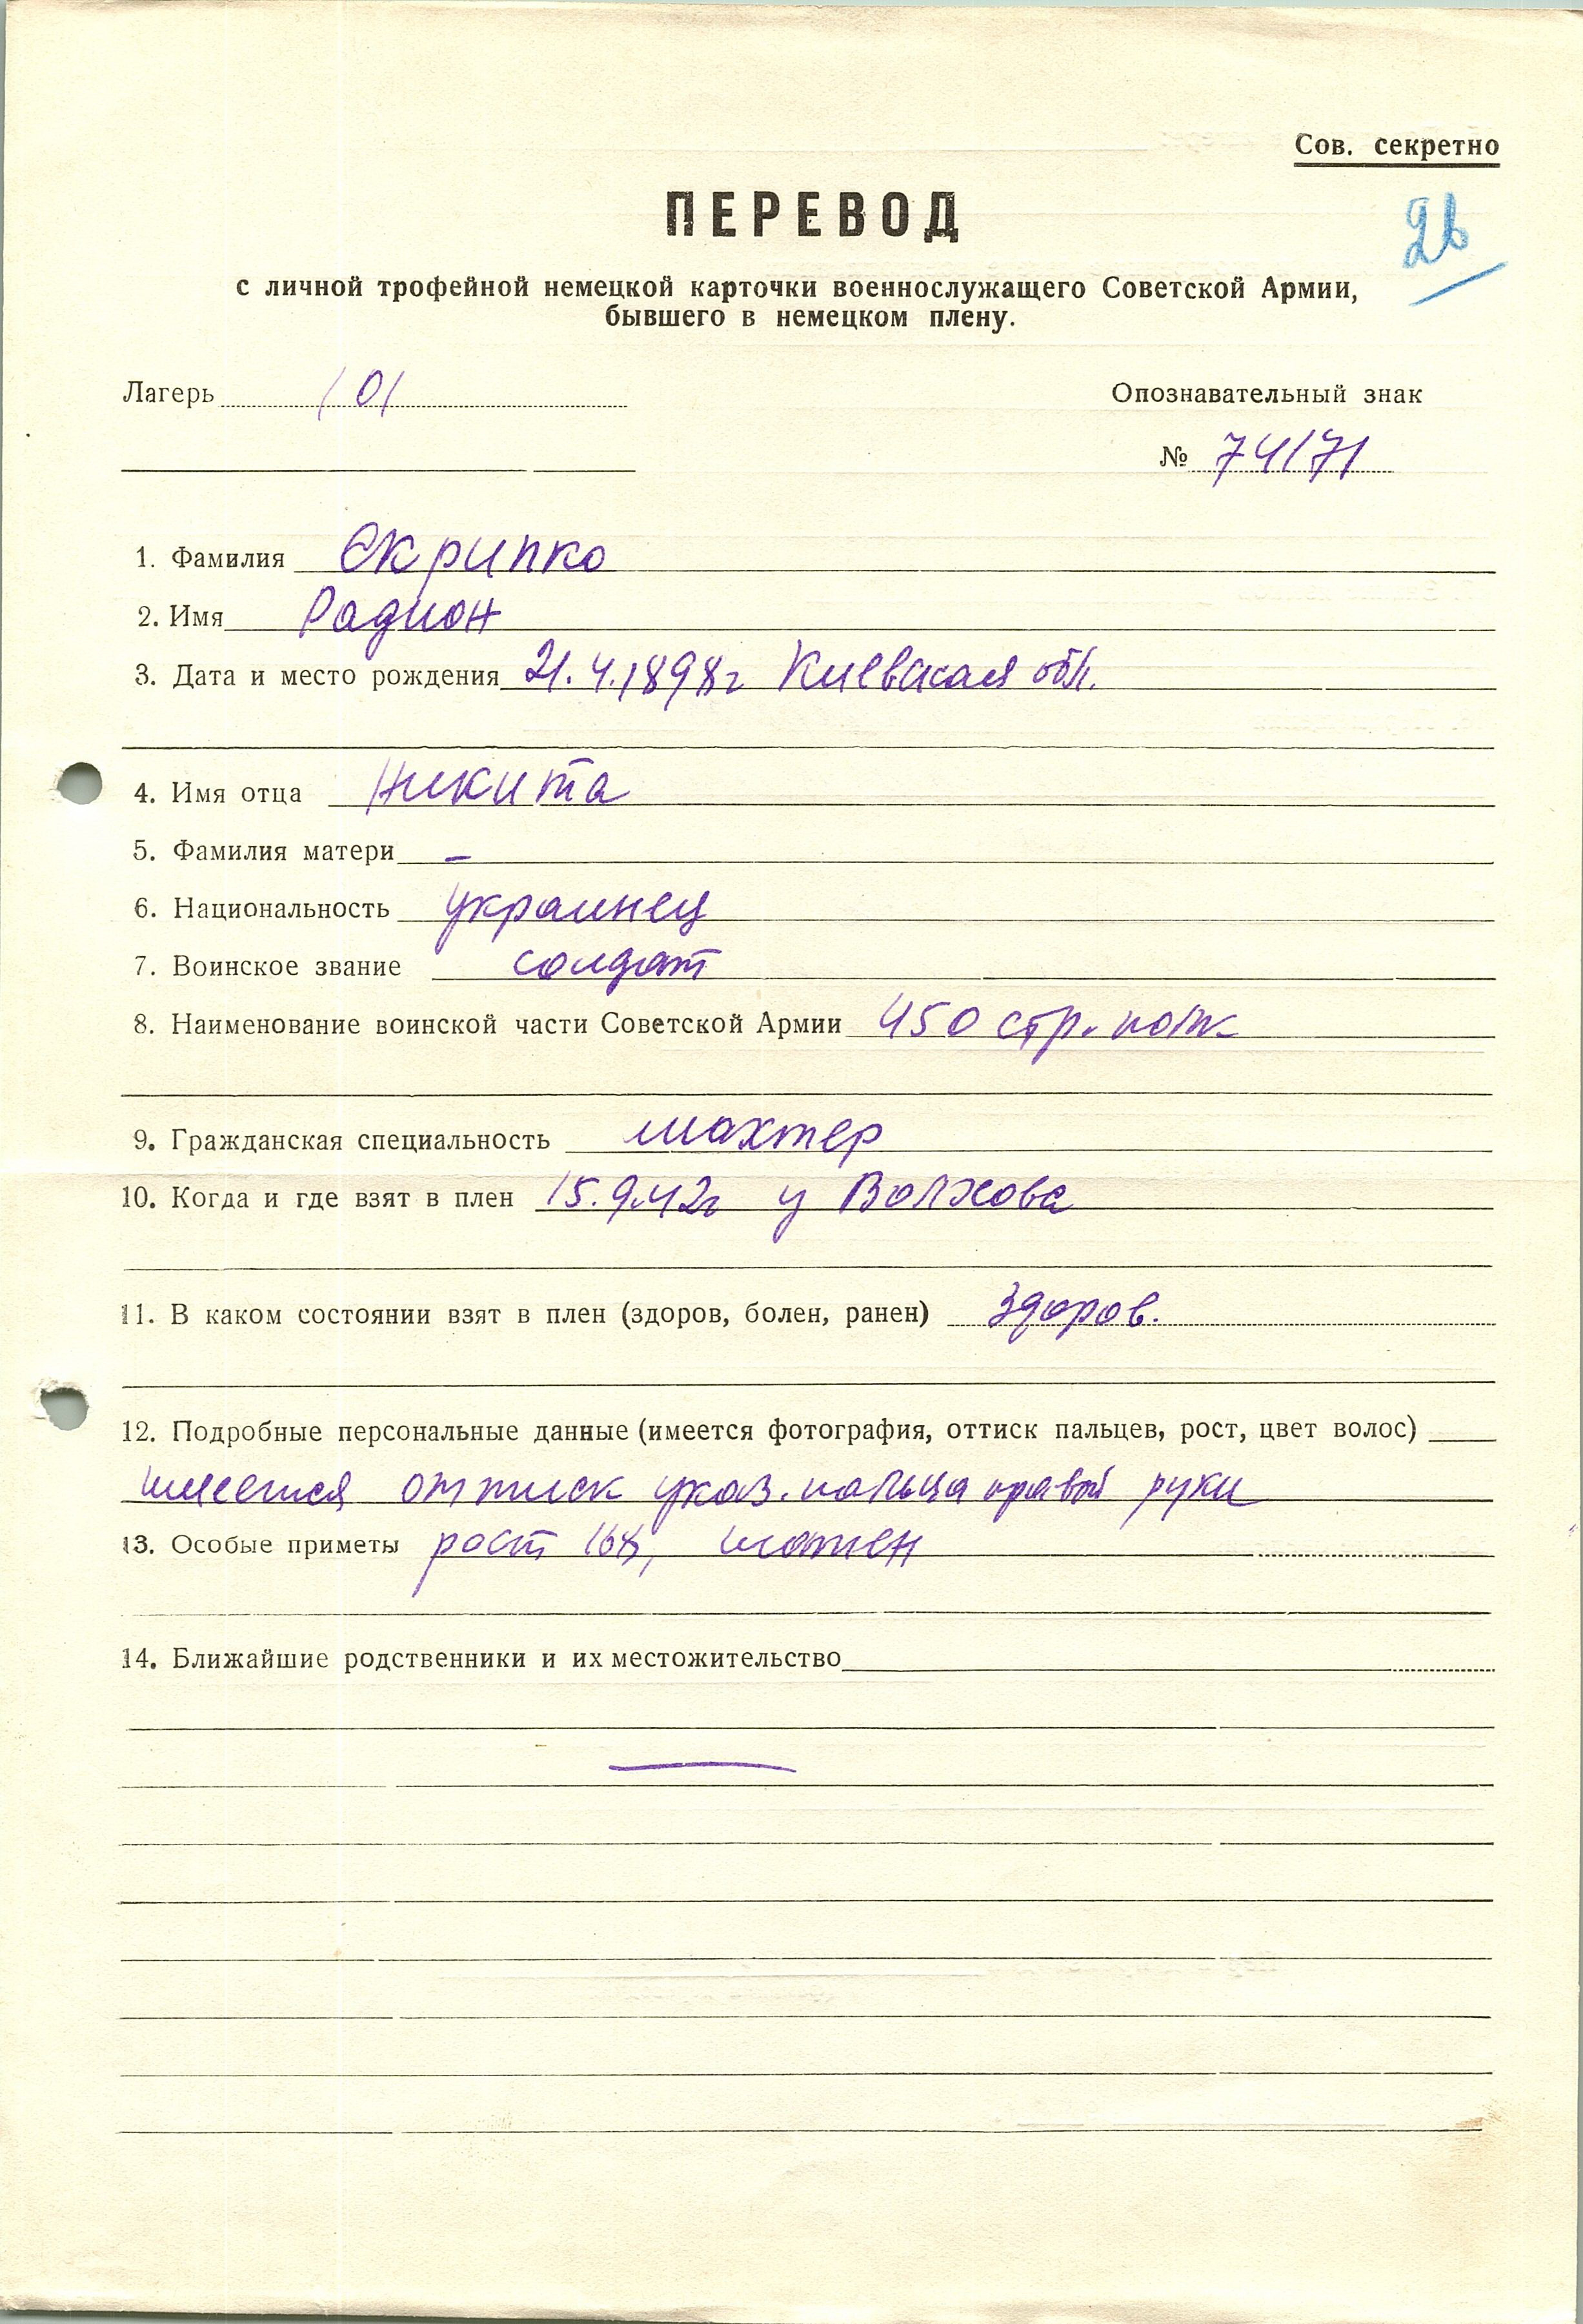 Сов. секретно
ПЕРЕВОД
26
с личной трофейной немецкой карточки военнослужащего Советской Армии,
бывшего в немецком плену.
Лагерь 101
Опознавательный знак
№ 74171
1. Фамилия Скрипко
2. Имя Радион
3. Дата и место рождения 21.4.1898г Киевская обл.
4. Имя отца Никита
5. Фамилия матери –
6. Национальность украинец
7. Воинское звание солдат
8. Наименование воинской части Советской Армии 450 стр. полк
9. Гражданская специальность шахтер
10. Когда и где взят в плен 15.9.42г у Волхова
11. В каком состоянии взят в плен (здоров, болен, ранен) здоров.
12. Подробные персональные данные (имеется фотография, оттиск пальцев, рост, цвет волос)
имеется оттиск указ. пальца правой руки
13. Особые приметы рост 168, шатен
14. Ближайшие родственники и их местожительство
—